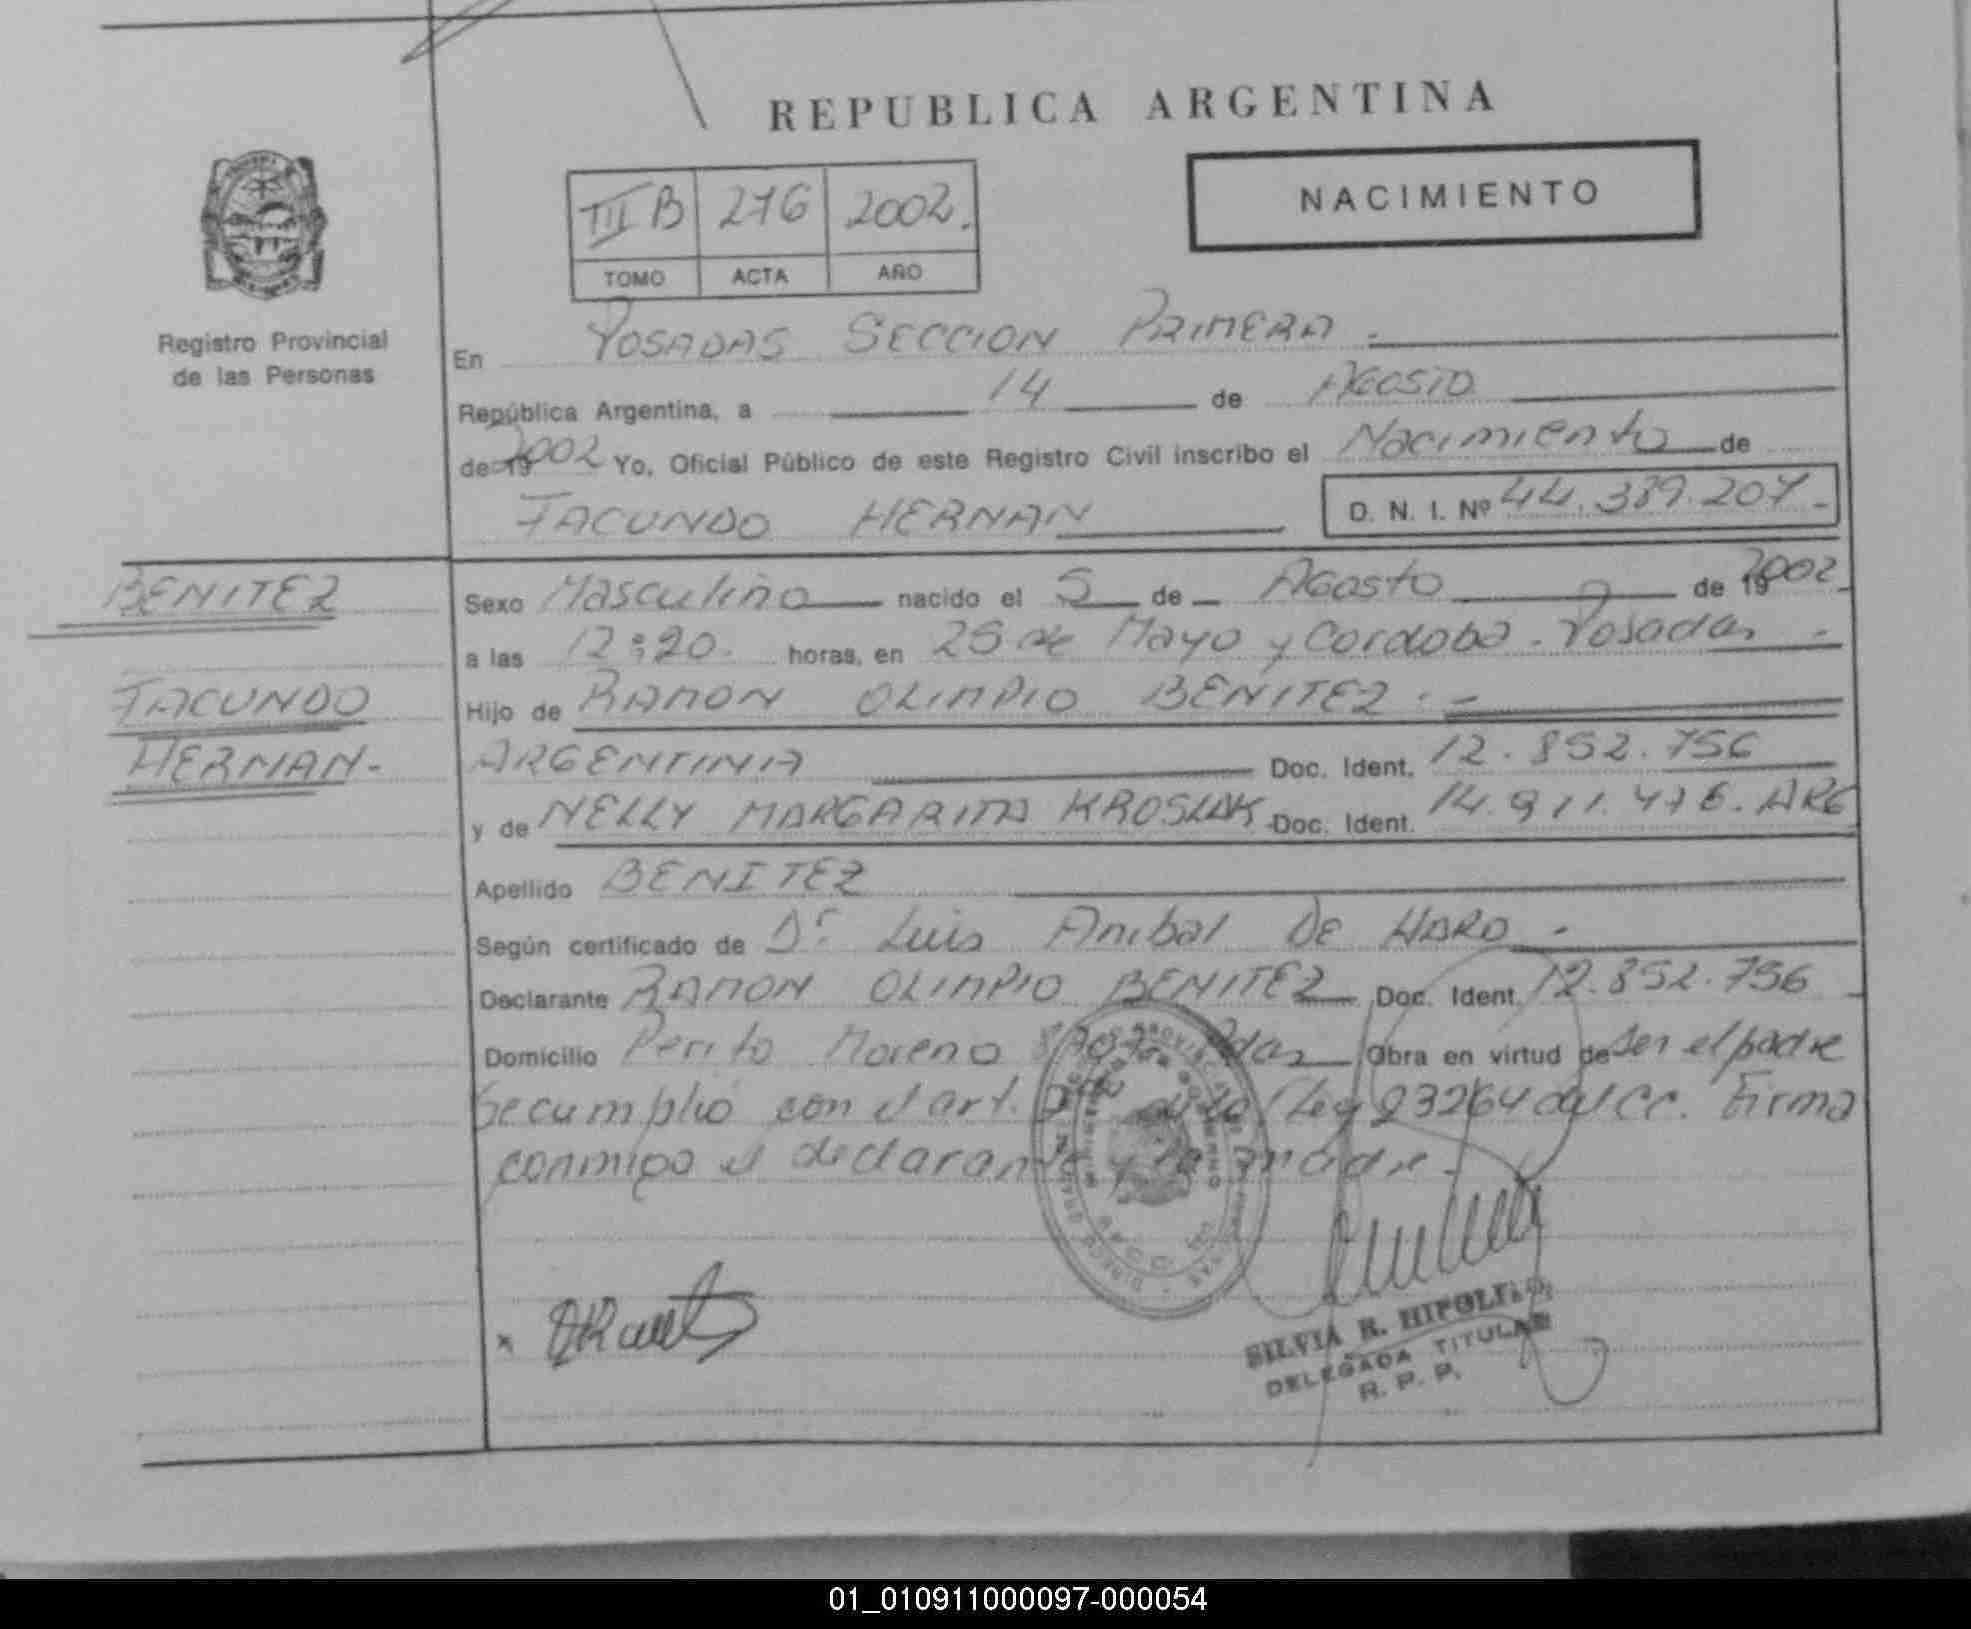 REPUBLICA ARGENTINA
NACIMIENTO
III B 276 2002.
TOMO ACTA AÑO
Registro Provincial
de las Personas
En POSADAS SECCION PRIMERA.
República Argentina, a 14 de AGOSTO
de 19 2002 Yo, Oficial Público de este Registro Civil inscribo el Nacimiento de
FACUNDO HERNAN D. N. I. Nº 44.389.207.-
BENITEZ
FACUNDO
HERNAN-
Sexo Masculino nacido el 5 de Agosto de 19 2002.
a las 12:20. horas, en 25 de Mayo y Cordoba. Posadas -
Hijo de RAMON OLIMPIO BENITEZ. -
ARGENTINA Doc. Ident. 12.852.756
y de NELLY MARGARITA KROSLAK Doc. Ident. 14.911.476. ARG
Apellido BENITEZ
Según certificado de Dr. Luis Anibal De HARO.
Declarante RAMON OLIMPIO BENITEZ Doc. Ident. 12.852.756
Domicilio Perito Moreno Pdas Obra en virtud de ser el padre
Se cumplió con el art. Ley 23264 del CC. Firma
conmigo el declarante y la madre.
SILVIA R. HIPOLITO
DELEGADA TITULAR
R. P. P.
01_010911000097-000054